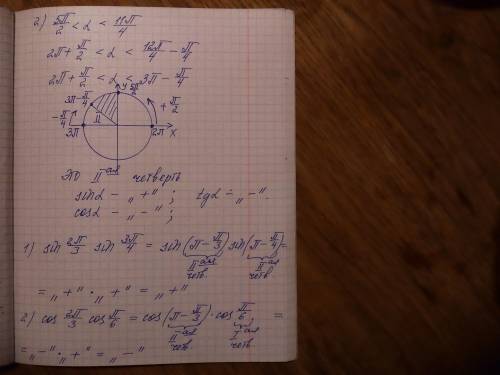 2) 5π/2 < α < 11π/4
2π + π/2 < α < 12π/4 − π/4
2π + π/2 < α < 3π − π/4
y 5π/2
3π − π/4
+ π/2
− π/4
II
3π 2π x
это II-ая четверть
sinα − „+“; tgα − „−“.
cosα − „−“;
1) sin 2π/3 sin 3π/4 = sin(π − π/3) sin(π − π/4) =
II-ая четв. II-ая четв.
= „+“ · „+“ = „+“
2) cos 2π/3 cos π/6 = cos(π − π/3) · cos π/6; =
II-ая четв. I-ая четв.
= „−“ · „+“ = „−“